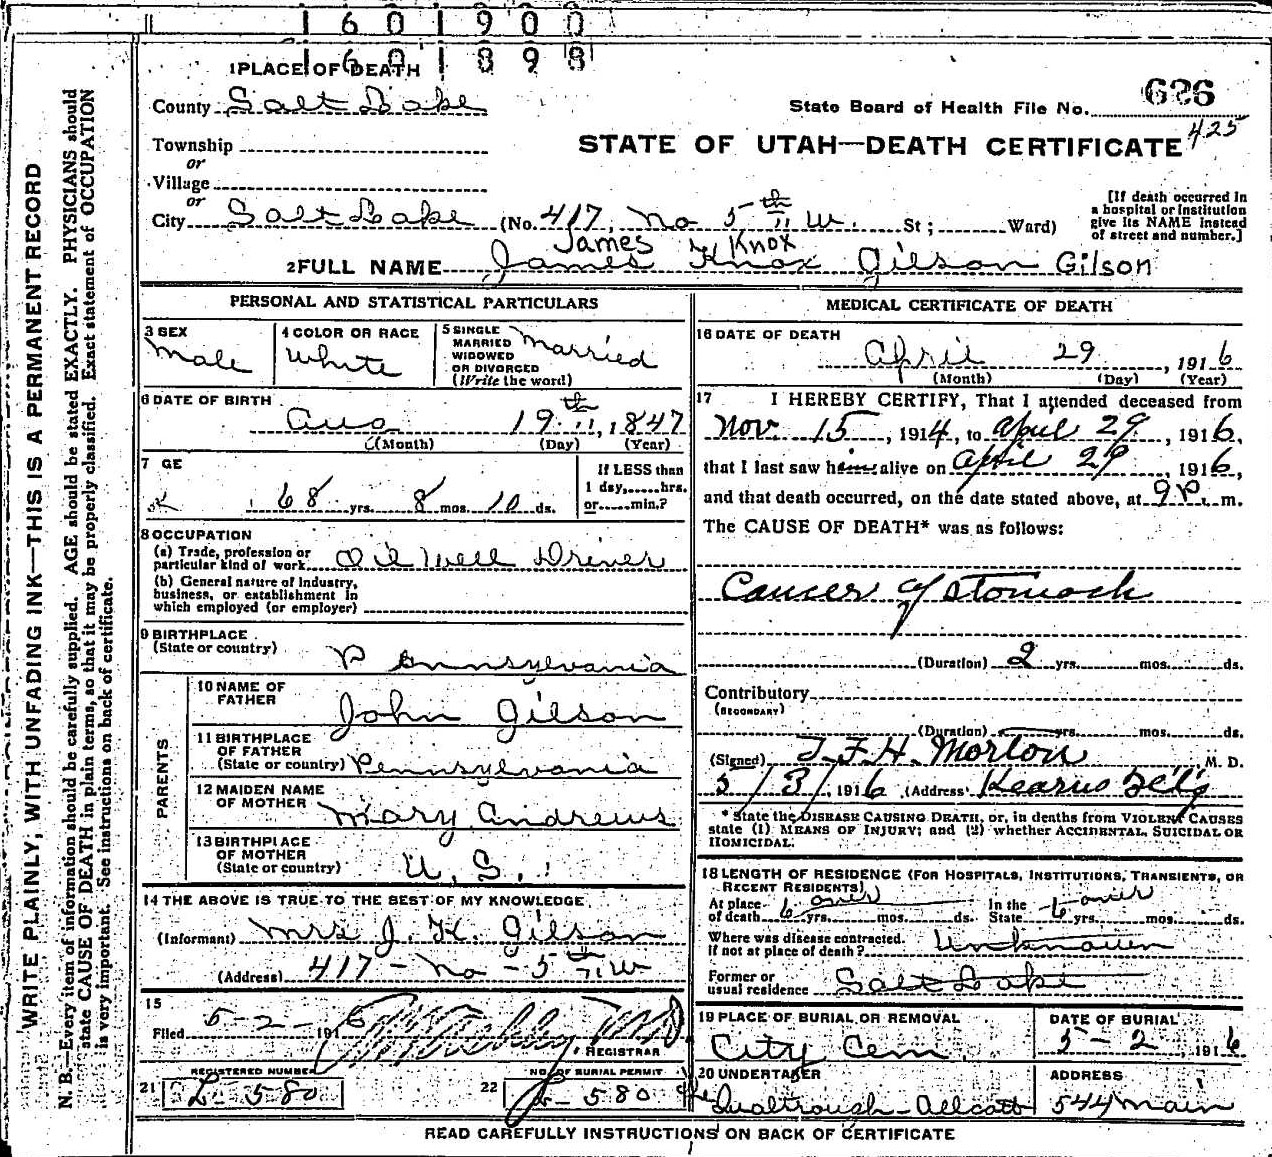 1 6 0 1 9 0 0
1 6 0 1 8 9 8
1 PLACE OF DEATH
County Salt Lake
State Board of Health File No. 626
425
Township
or
STATE OF UTAH—DEATH CERTIFICATE
Village
or
City Salt Lake (No. 417, No 5th W. St; Ward)
[If death occurred in a hospital or institution give its NAME instead of street and number.]
James Knox
2 FULL NAME James Knox Gilson Gilson
PERSONAL AND STATISTICAL PARTICULARS
3 SEX
Male
4 COLOR OR RACE
White
5 SINGLE MARRIED WIDOWED OR DIVORCED (Write the word)
Married
6 DATE OF BIRTH
Aug 19th, 1847
(Month) (Day) (Year)
7 GE
68 yrs. 8 mos. 10 ds.
If LESS than 1 day,.....hrs. or.....min.?
8 OCCUPATION
(a) Trade, profession or particular kind of work Oil Well Driver
(b) General nature of Industry, business, or establishment in which employed (or employer)
9 BIRTHPLACE
(State or country)
Pennsylvania
PARENTS
10 NAME OF FATHER
John Gilson
11 BIRTHPLACE OF FATHER (State or country) Pennsylvania
12 MAIDEN NAME OF MOTHER
Mary Andrews
13 BIRTHPLACE OF MOTHER (State or country)
U. S.
14 THE ABOVE IS TRUE TO THE BEST OF MY KNOWLEDGE
(Informant) Mrs J. K. Gilson
(Address) 417 - No - 5th W
15
Filed 5-2-1916
REGISTRAR
REGISTERED NUMBER
21 L- 580
NO. OF BURIAL PERMIT
22 L- 580
MEDICAL CERTIFICATE OF DEATH
16 DATE OF DEATH
April 29, 1916
(Month) (Day) (Year)
17 I HEREBY CERTIFY, That I attended deceased from
Nov. 15, 1914, to April 29, 1916,
that I last saw him alive on April 29, 1916,
and that death occurred, on the date stated above, at 9 P. m.
The CAUSE OF DEATH* was as follows:
Cancer of Stomach
(Duration) 2 yrs. mos. ds.
Contributory
(SECONDARY)
(Duration) yrs. mos. ds.
(Signed) T. F. H. Morton, M. D.
5/3/, 1916 (Address) Kearns Bldg
* State the DISEASE CAUSING DEATH, or, in deaths from VIOLENT CAUSES
state (1) MEANS OF INJURY; and (2) whether ACCIDENTAL, SUICIDAL OR
HOMICIDAL.
18 LENGTH OF RESIDENCE (FOR HOSPITALS, INSTITUTIONS, TRANSIENTS, OR
RECENT RESIDENTS)
At place of death 6 over yrs. mos. ds. In the State 6 over yrs. mos. ds.
Where was disease contracted. If not at place of death? Unknown
Former or usual residence Salt Lake
19 PLACE OF BURIAL OR REMOVAL
City Cem.
DATE OF BURIAL
5-2, 1916
20 UNDERTAKER
ADDRESS
544 Main
READ CAREFULLY INSTRUCTIONS ON BACK OF CERTIFICATE
WRITE PLAINLY, WITH UNFADING INK—THIS IS A PERMANENT RECORD
N. B.—Every item of information should be carefully supplied. AGE should be stated EXACTLY. PHYSICIANS should
state CAUSE OF DEATH in plain terms, so that it may be properly classified. Exact statement of OCCUPATION
is very important. See instructions on back of certificate.